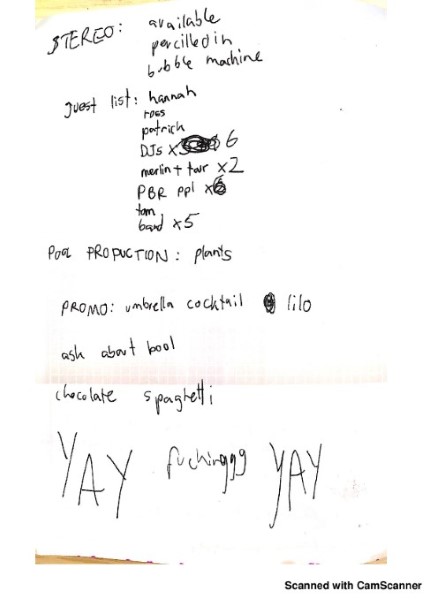 STEREO: available
percilled in
bubble machine
guest list: hannah
ross
patrick
DJs x 6
merlin + tour x2
PBR ppl x6
tom
band x5
POOL PRODUCTION: plants
PROMO: umbrella cocktail lilo
ask about bool
chocolate spaghetti
YAY fuckinggg YAY
Scanned with CamScanner